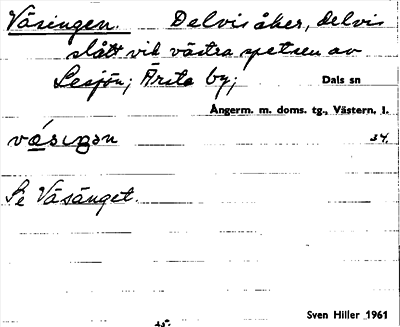 Väsingen. Delvis åker, delvis
slått vid västra spetsen av
Lesjön; Ärsta by; Dals sn
Ångerm. m. doms. tg., Västern, I.
34.
Se Väsänget.
Sven Hiller 1961